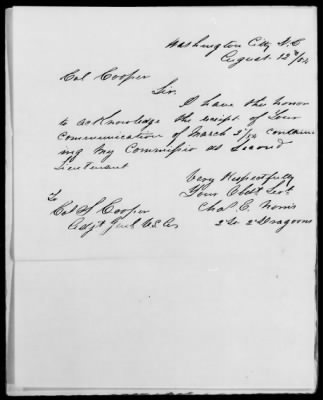 Washington City D.C
August 12th/54
Col Cooper
Sir.
I have the honor
to acknowledge the receipt of Your
Communication of March 3/54 contain
ing My Commission as Second
Lieutenant
Very Respectfully
Your Obdt Servt
To
Col S Cooper
Chas. E. Norris
Adjt Genl U.S. Ar
2 Lt 2d Dragoons